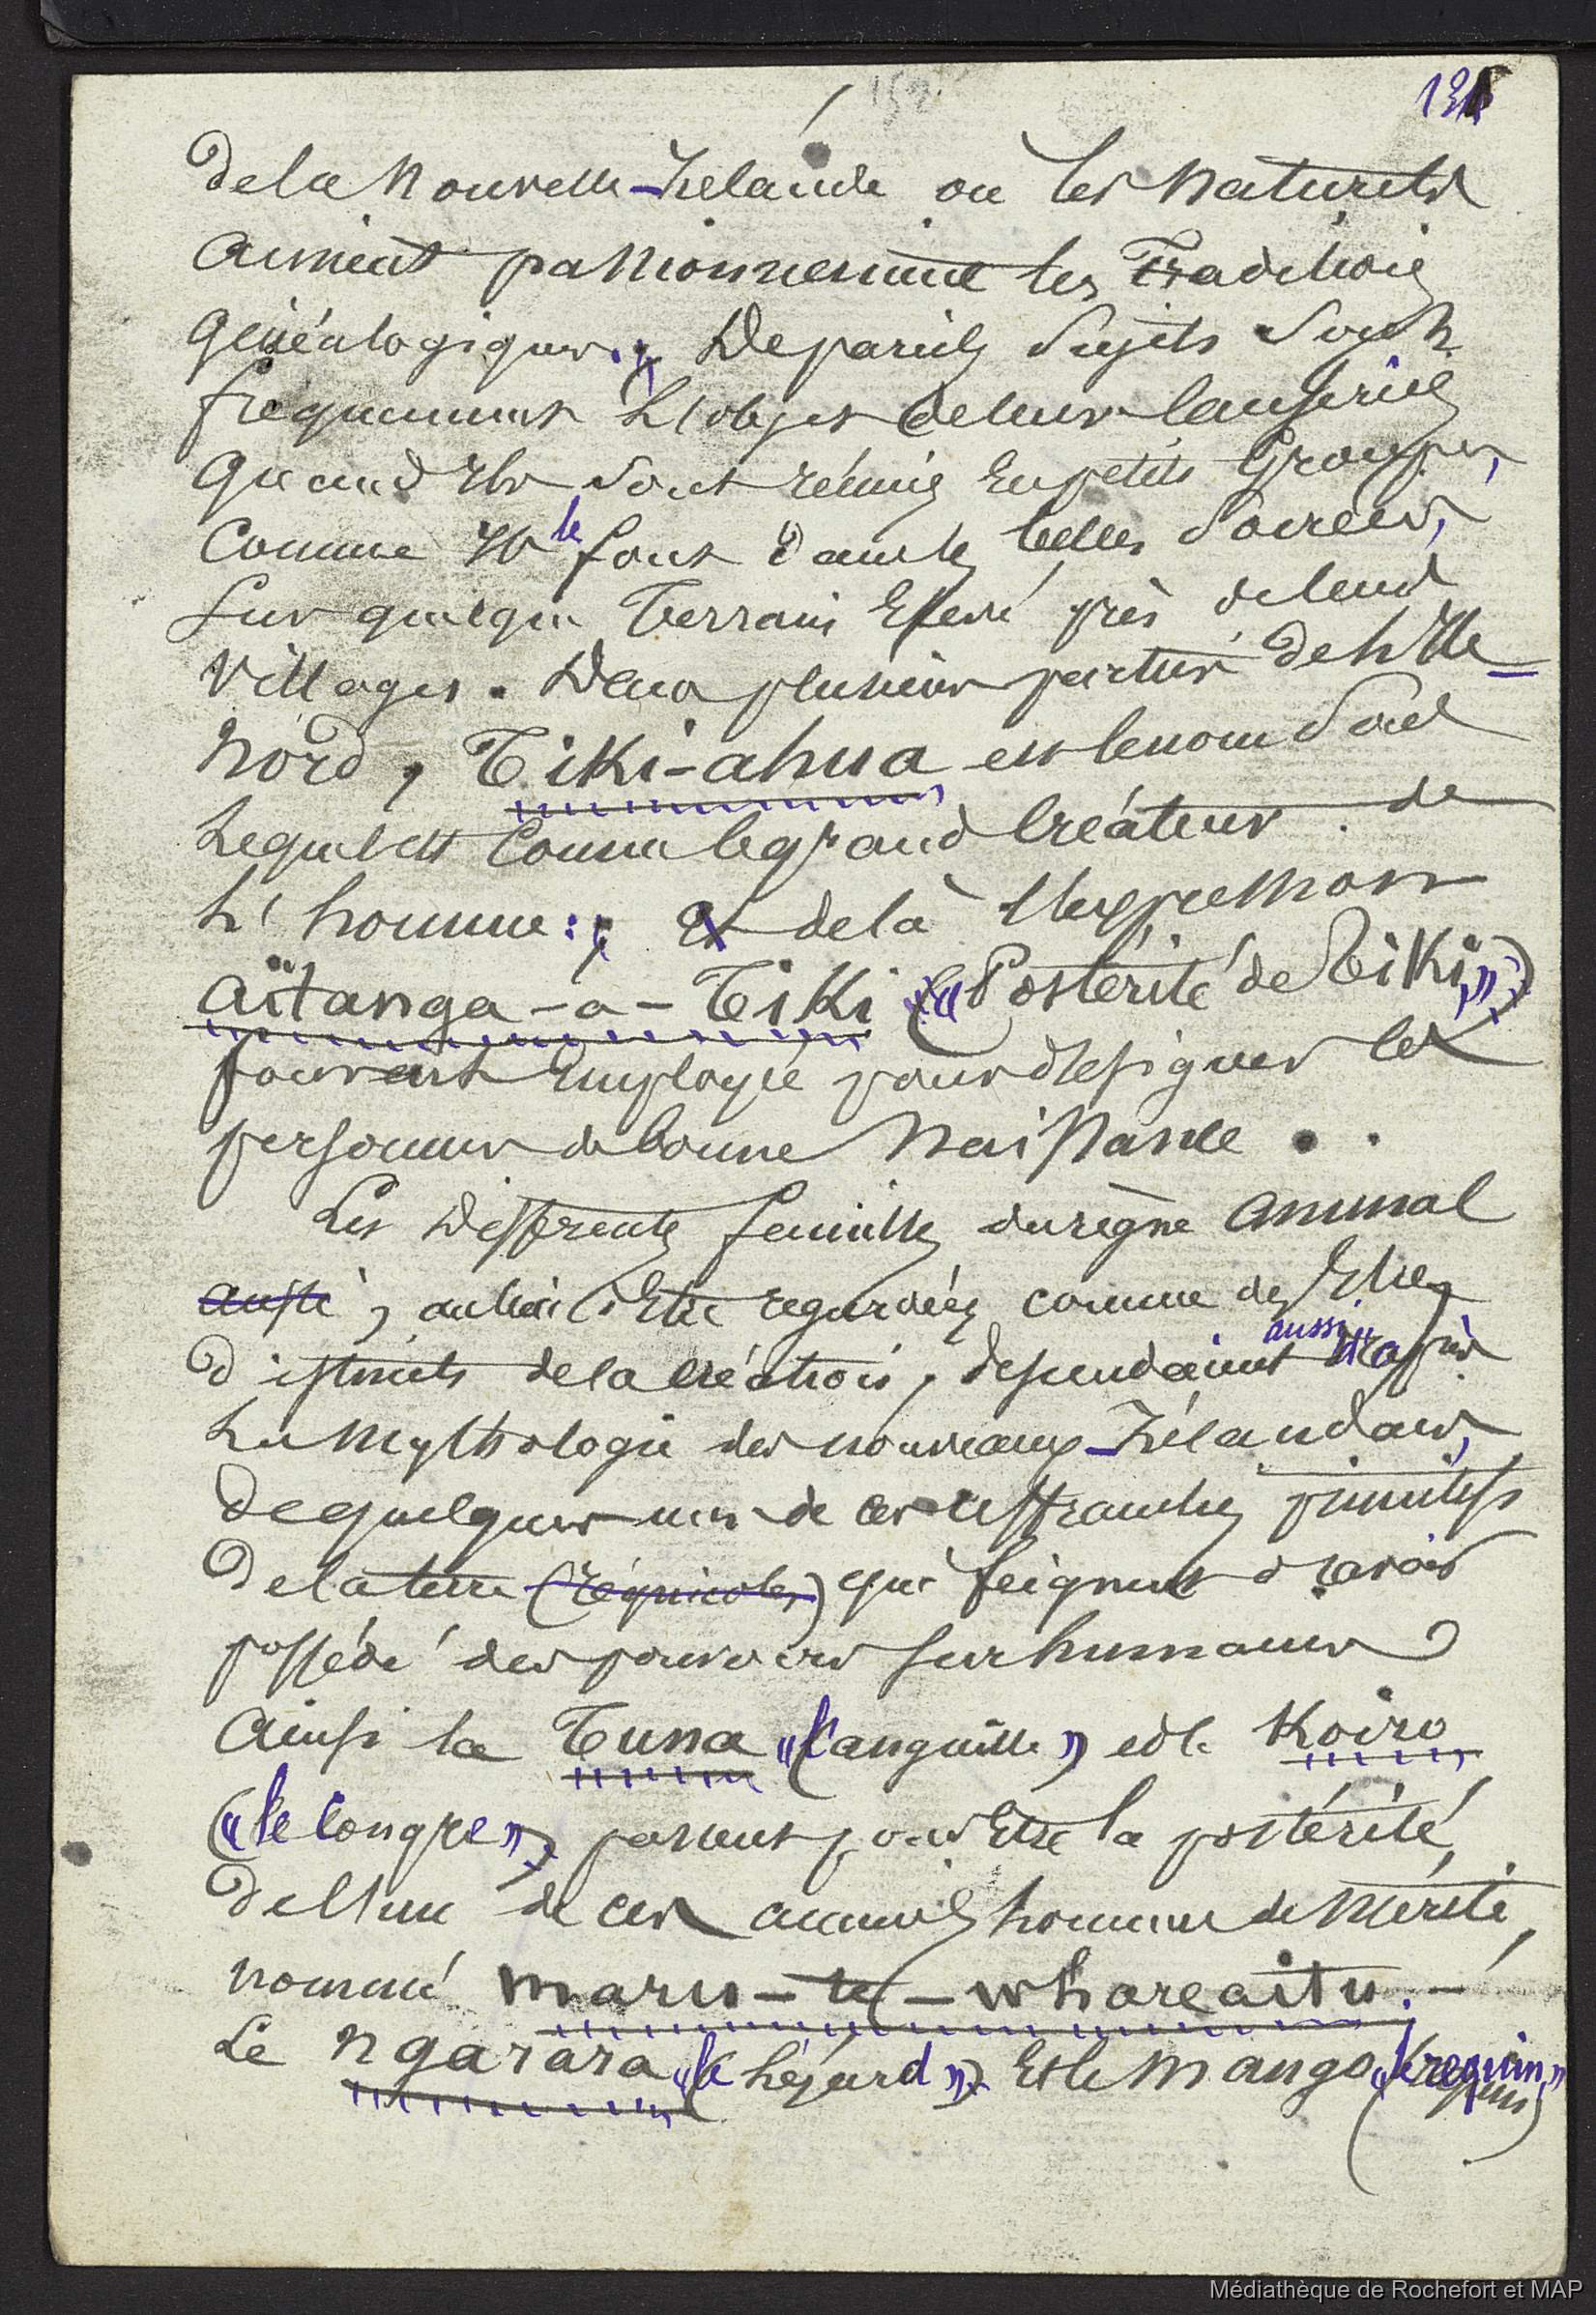 152
131
de la Nouvelle-Zélande où les naturels
aiment passionnément les Traditions
généalogiques. De pareils sujets sont
fréquemment l'objet de leurs causeries
quand ils sont réunis en petits groupes,
comme ils le font dans les belles soirées,
sur quelque Terrain Elevé près de leurs
villages. Dans plusieurs parties de l'Ile-
Nord, Tiki-ahua est le nom sous
lequel est connu le grand Créateur de
l'homme ; et de là l'expression
aïtanga-a-Tiki («Postérité de Tiki»)
souvent Employée pour désigner les
personnes de bonne Naissance.
Les différentes familles du règne animal
aussi, au lieu d'Etre regardées comme des Etres
aussi
distincts de la création, dépendaient d'après
la Mythologie des nouveaux-Zélandais,
de quelques uns de ces primitifs
de la terre (régnicoles) qui feignent d'avoir
possédé des pouvoirs surhumains
Ainsi la Tuna «(l'anguille») et le Koiro
(«le Congre») passent pour Etre la postérité
de l'un de ces anciens hommes de Mérite,
nommé maru-te-whareaitu.-
Le ngarara «(le Lézard») Et le Mango «(le requin»
requin)
Médiathèque de Rochefort et MAP